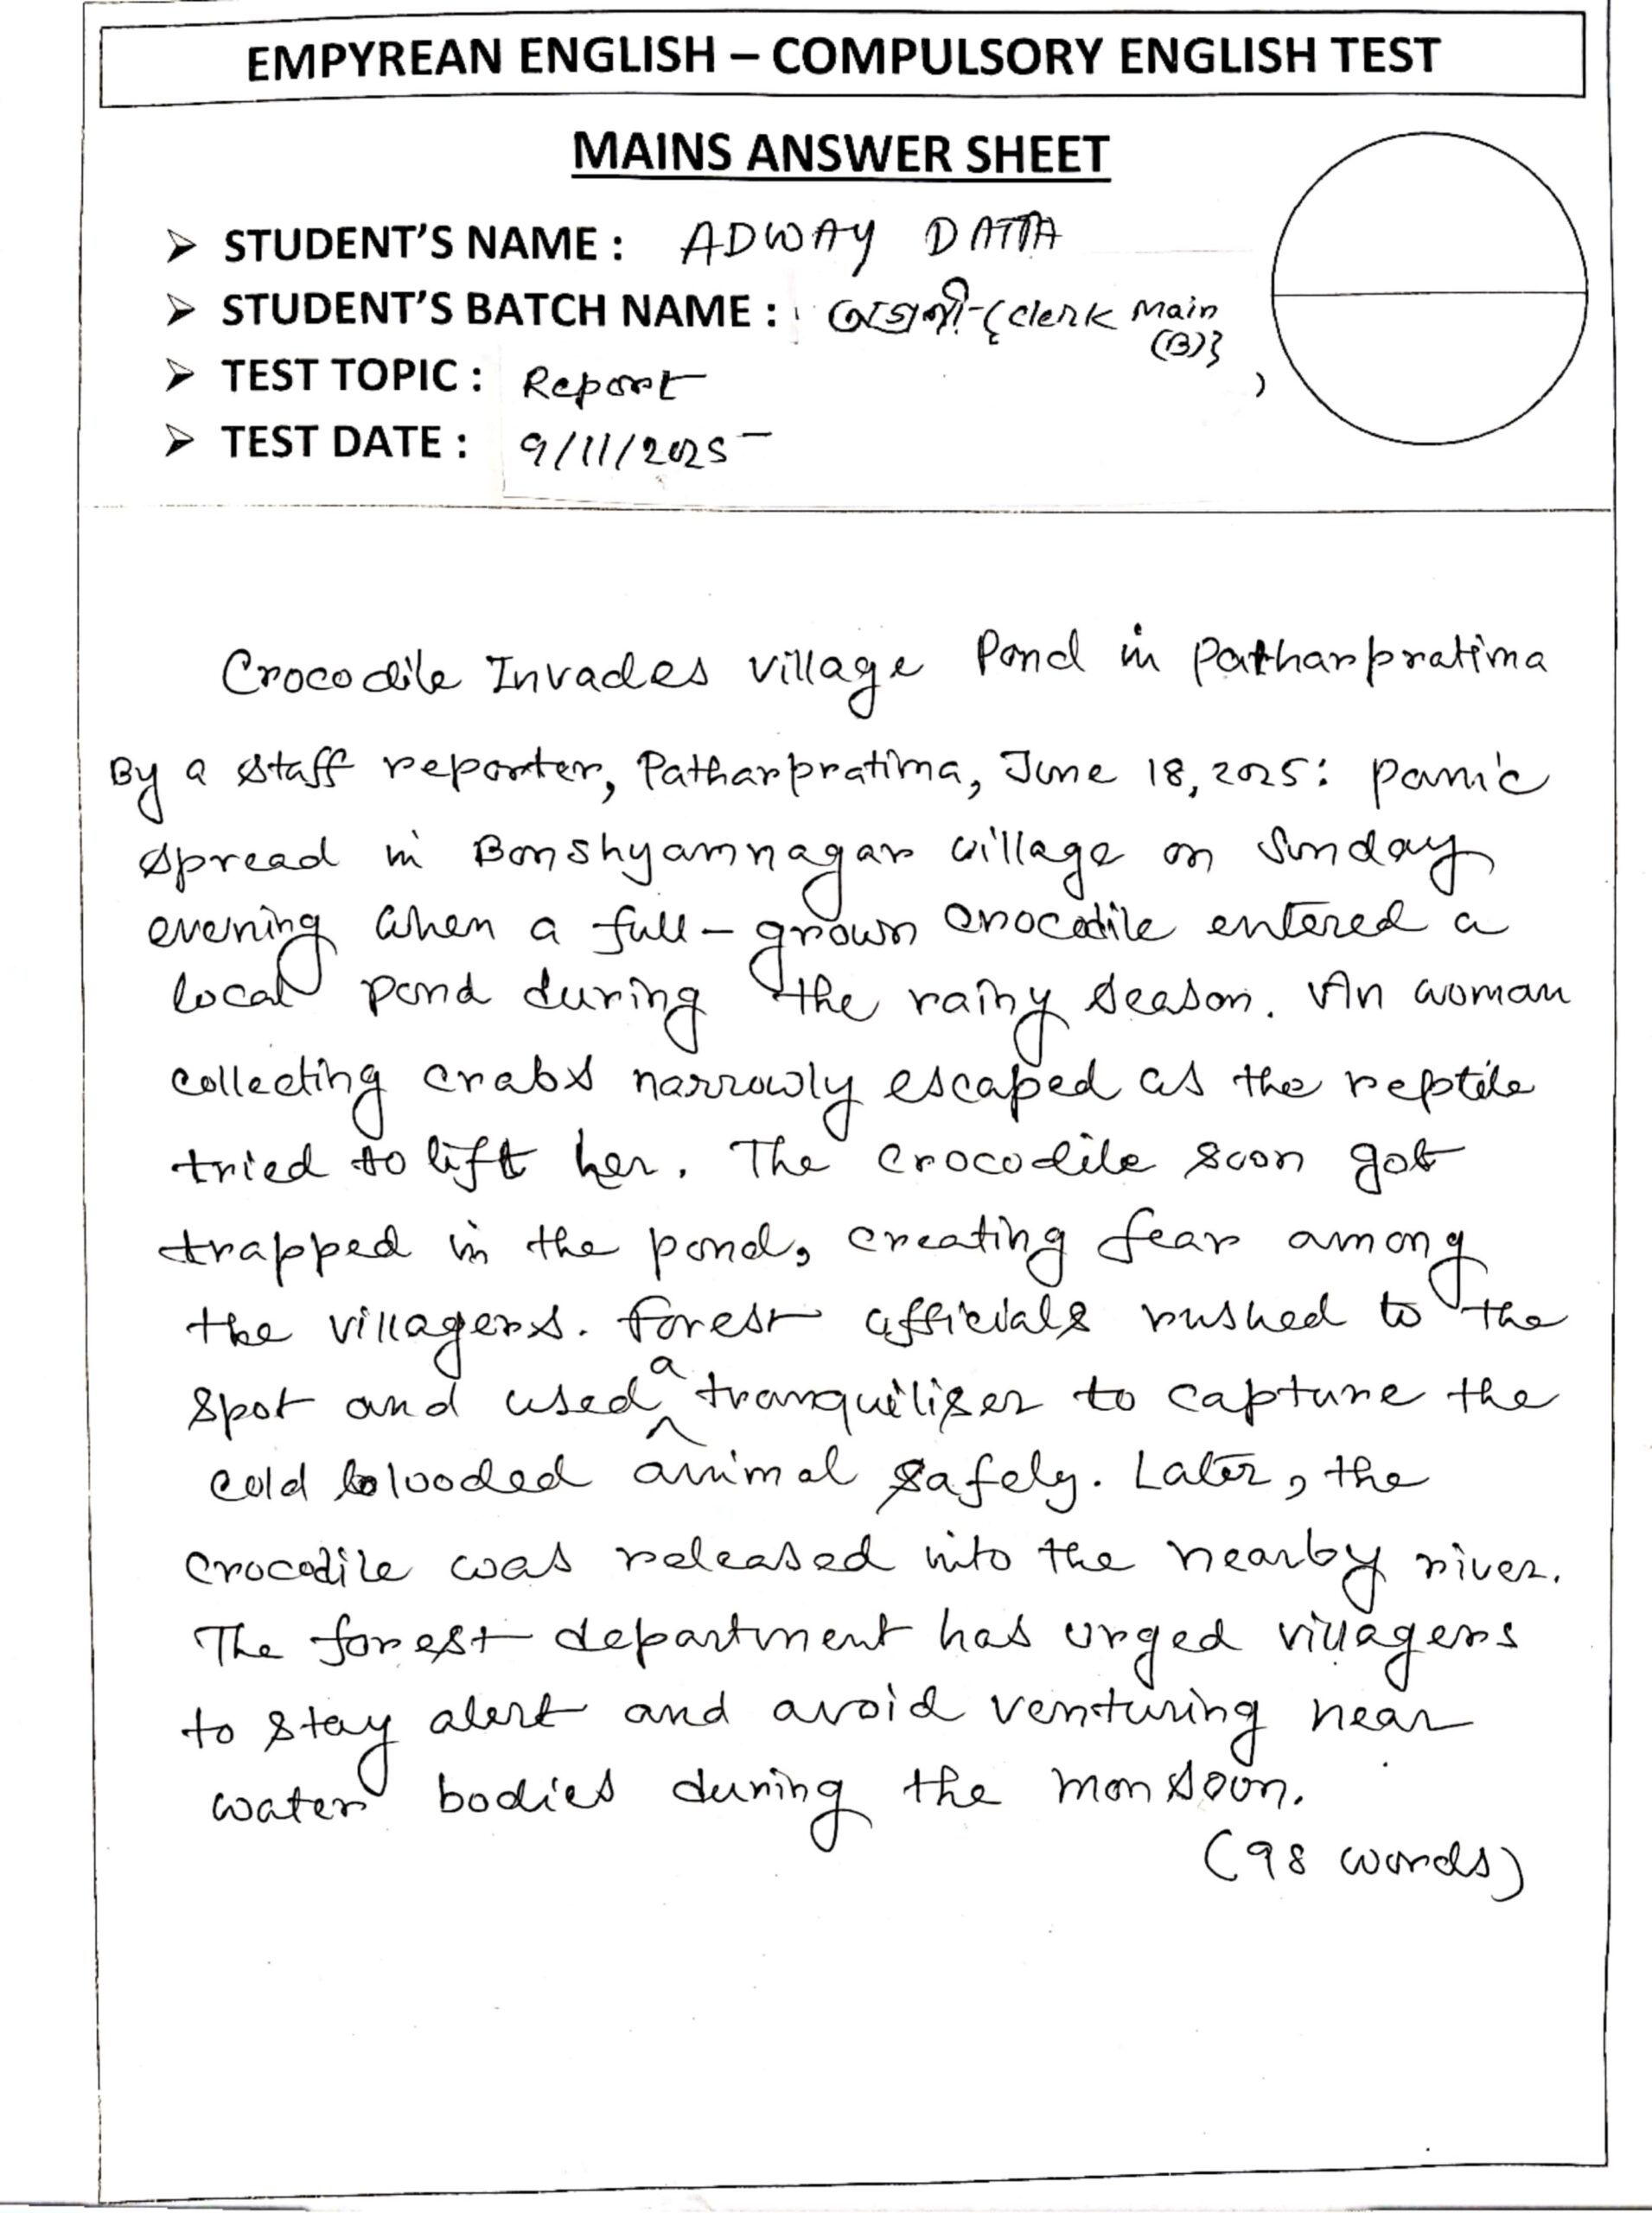 EMPYREAN ENGLISH – COMPULSORY ENGLISH TEST
MAINS ANSWER SHEET
➢ STUDENT'S NAME : ADWAY DATTA
➢ STUDENT'S BATCH NAME : অগ্রণী-{Clerk Main
(B)}
➢ TEST TOPIC : Report
➢ TEST DATE : 9/11/2025
Crocodile Invades Village Pond in Patharpratima
By a staff reporter, Patharpratima, June 18, 2025: Panic
spread in Bonshyamnagar village on Sunday
evening when a full-grown crocodile entered a
local pond during the rainy season. An woman
collecting crabs narrowly escaped as the reptile
tried to lift her. The crocodile soon got
trapped in the pond, creating fear among
the villagers. Forest officials rushed to the
spot and used a tranquiliser to capture the
cold blooded animal safely. Later, the
crocodile was released into the nearby river.
The forest department has urged villagers
to stay alert and avoid venturing near
water bodies during the monsoon.
(98 words)